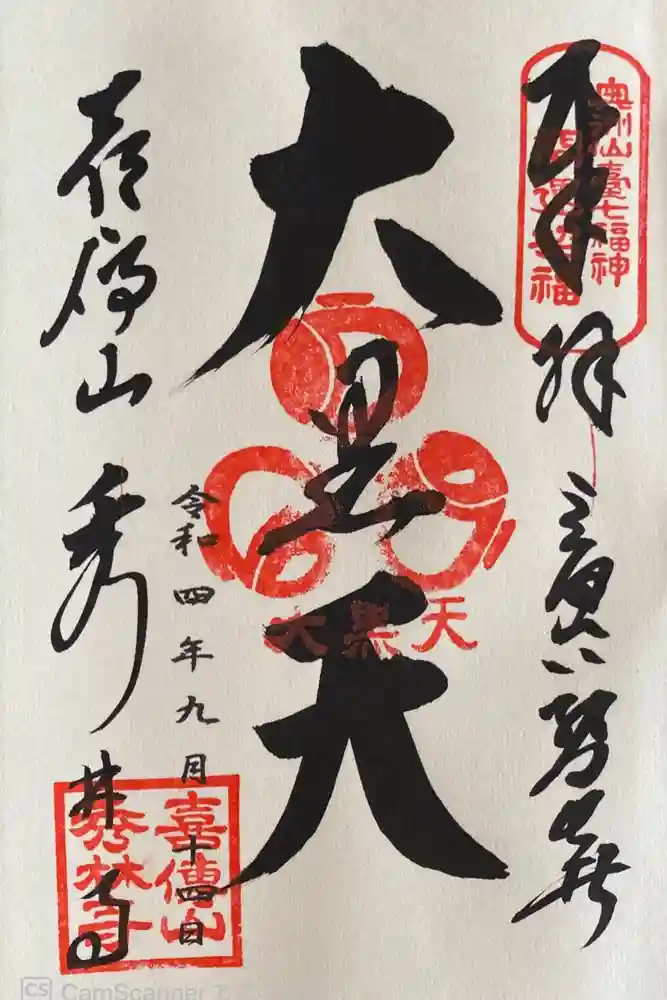 奉拝
奥州仙臺七福神
開運招福
大黒天
大黒天
令和四年九月十四日
喜傳山 秀林寺
喜傳山
秀林寺
CS CamScanner